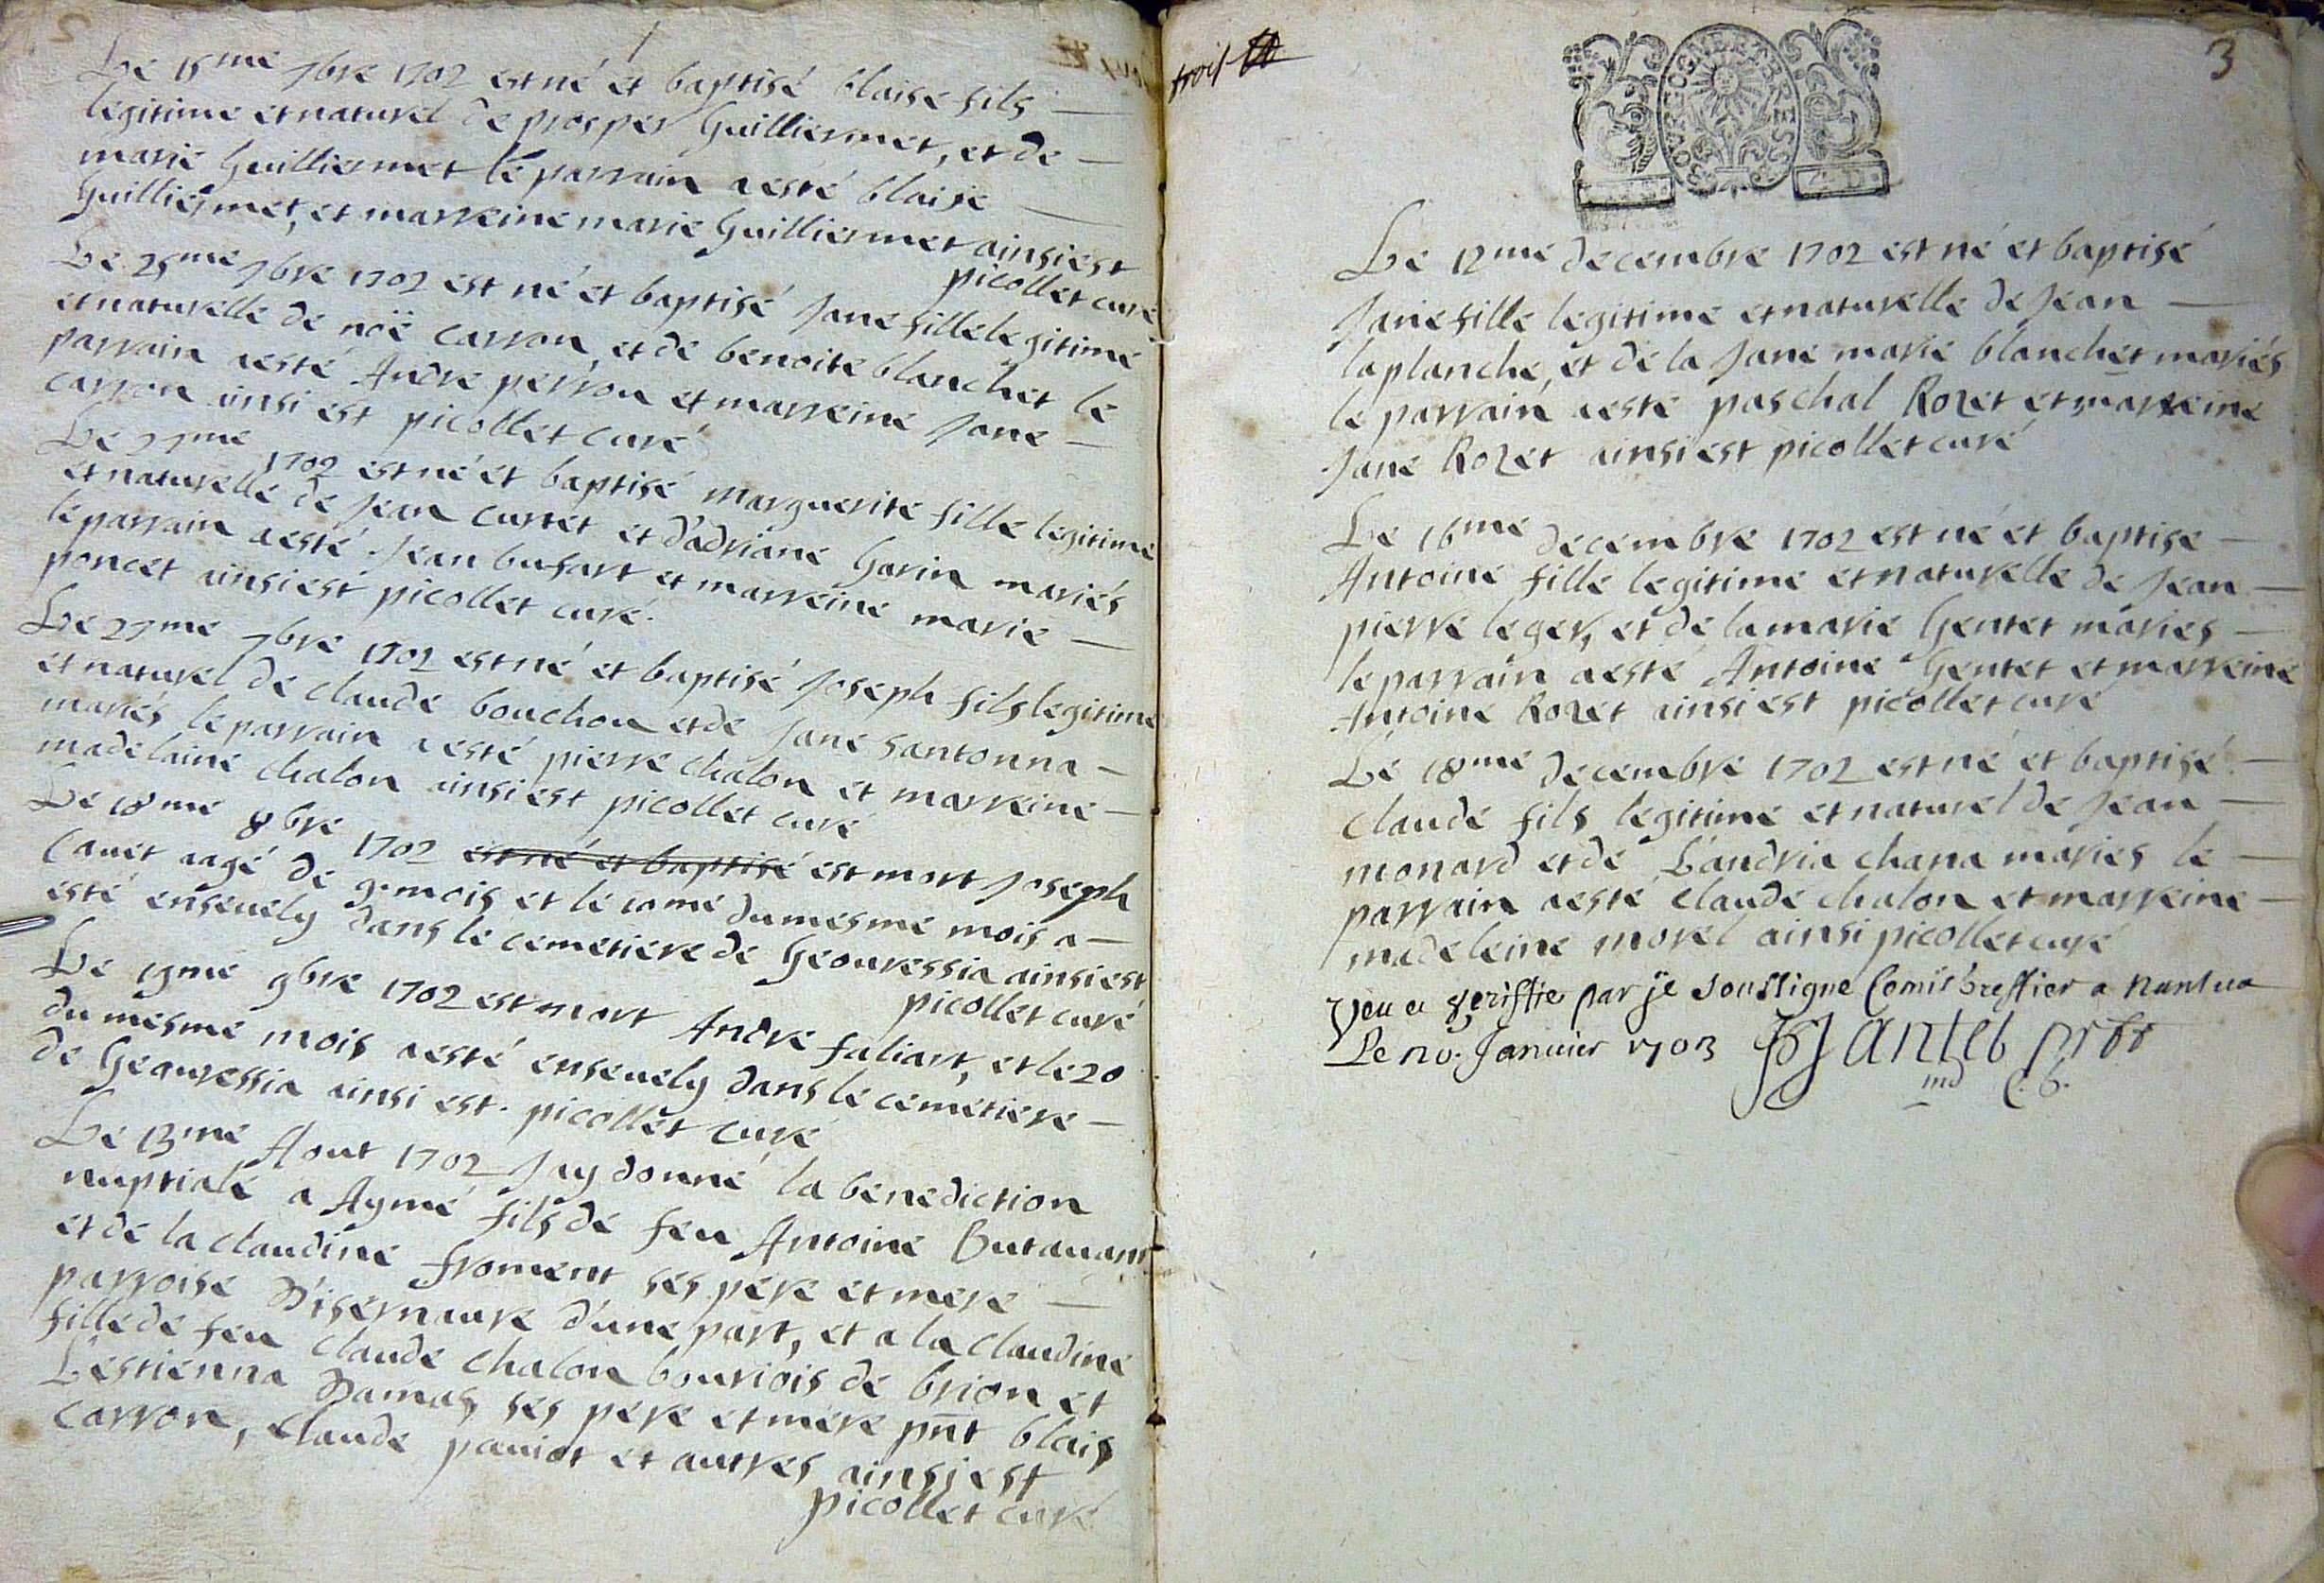 Le 15me 7bre 1702 est né et baptisé blaise fils
legitime et naturel de prosper Guilliermet, et de
marie Guilliermet le parrain a esté blaise
Guilliermet, et marreine marie Guilliermet ainsi est
picollet curé
Le 25me 7bre 1702 est né et baptisé Jane fille legitime
et naturelle de noë carron, et de benoite blanchet le
parrain a esté Andre perron et marreine Jane
carron ainsi est picollet curé
Le 27me 1702 est né et baptisé marguerite fille legitime
et naturelle de Jean curtet et d'adriane Gorin mariés
le parrain a esté Jean busart et marreine marie
poncet ainsi est picollet curé
Le 27me 7bre 1702 est né et baptisé Joseph fils legitime
et naturel de claude bouchon et de Jane santonna
mariés le parrain a esté pierre chalon et marreine
madelaine chalon ainsi est picollet curé
Le 18me 8bre 1702 est né et baptisé est mort Joseph
Cauet aagé de 9. mois et le du mesme mois a
esté enseuely dans le cemetiere de Geouressia ainsi est
picollet curé
Le 19me 9bre 1702 est mort Andre faliart, et le 20
du mesme mois a esté enseuely dans le cemetiere
de Geauressia ainsi est. picollet curé
Le 13me Aout 1702 Jay donné la benediction
nuptiale a Aymé fils de feu Antoine Butauant
et de la claudine froment ses pere et mere
parroise D'isernaure d'une part, et a la claudine
fille de feu claude chalon bouriois de brion et
L'estienna Damas ses pere et mere pnt blais
carron, claude pauiot et autres ainsi est
picollet curé
trois
3
BOURGOGNE ET BRESSE
Le 12me decembre 1702 est né et baptisé
Jane fille legitime et naturelle de Jean
laplanche, et de la Jane marie blanchet mariés
le parrain a esté paschal Rozet et marreine
Jane Rozet ainsi est picollet curé
Le 16me decembre 1702 est né et baptise
Antoine fille legitime et naturelle de Jean
pierre leger, et de la marie Gentet mariés
le parrain a esté Antoine Gentet et marreine
Antoine Rozet ainsi est picollet curé
Le 18me decembre 1702 est né et baptisé
claude fils legitime et naturel de Jean
monard et de L'andria chana mariés le
parrain a esté claude chalon et marreine
madeleine morel ainsi picollet curé
Veu et veriffie par je soussigne Comis Greffier a Nantua
Le Januier 1703 Jantet